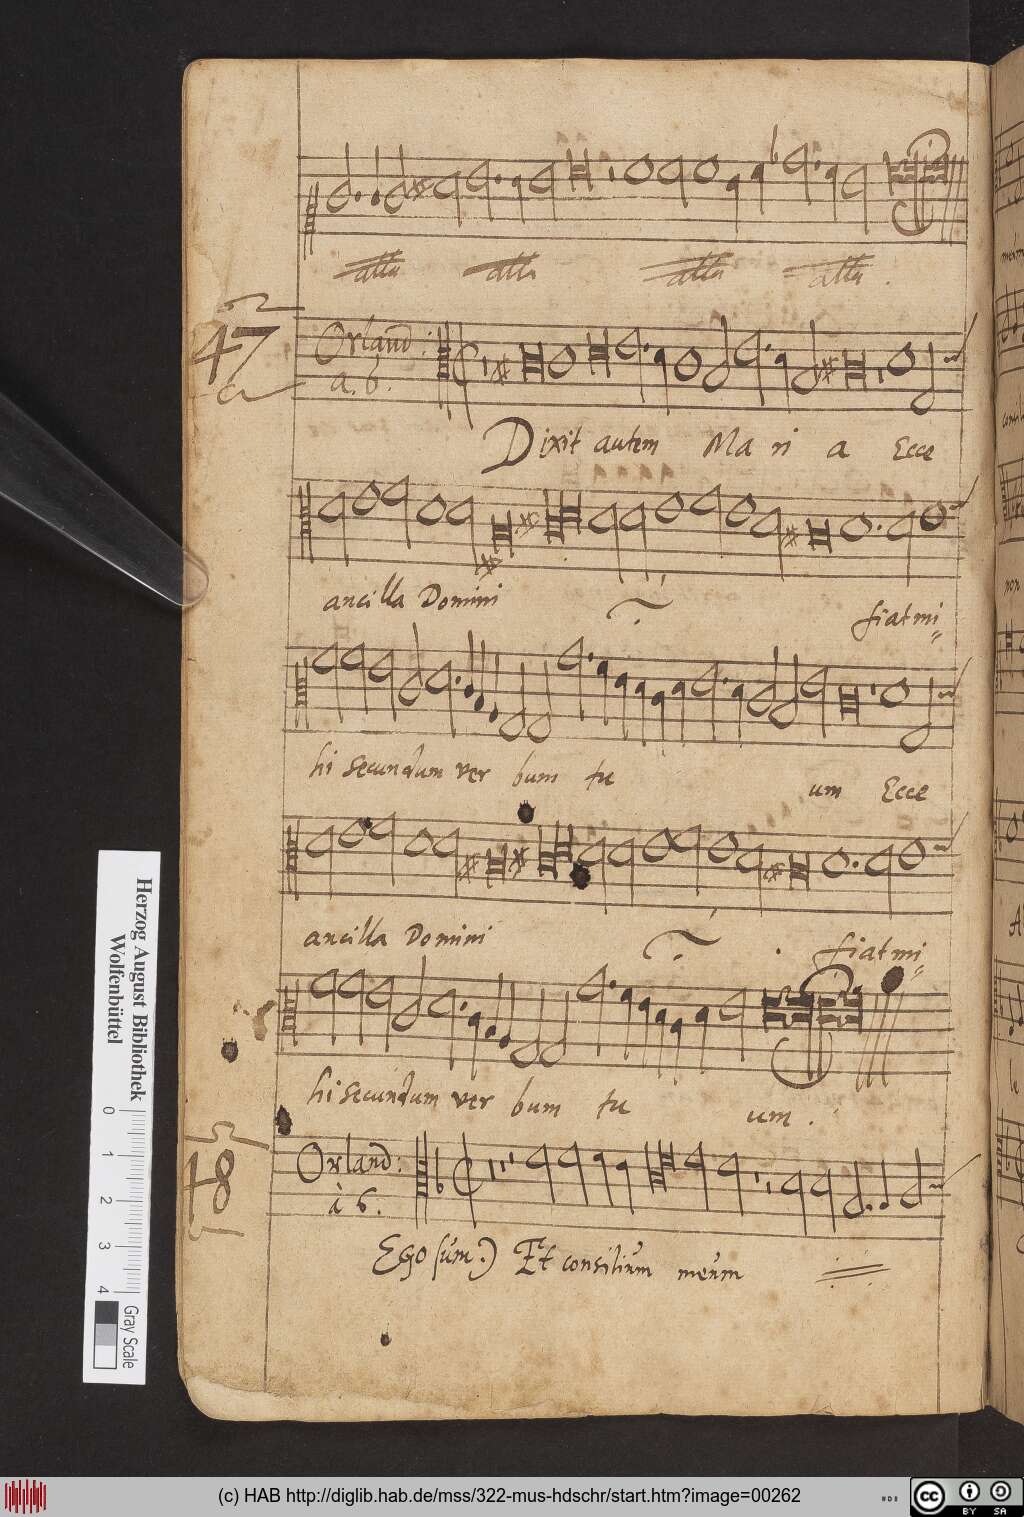 alla alla alla alla .
47
Orland:
a. 6.
Dixit autem Ma ri a Ecce
ancilla Domini fiat mi=
hi secundum ver bum tu um Ecce
ancilla Domini fiat mi=
hi secundum ver bum tu um .
48
Orland:
à 6.
Ego sum.) Et consilium meum
Herzog August Bibliothek
Wolfenbüttel
0 1 2 3 4
Gray Scale
(c) HAB http://diglib.hab.de/mss/322-mus-hdschr/start.htm?image=00262
cc BY SA